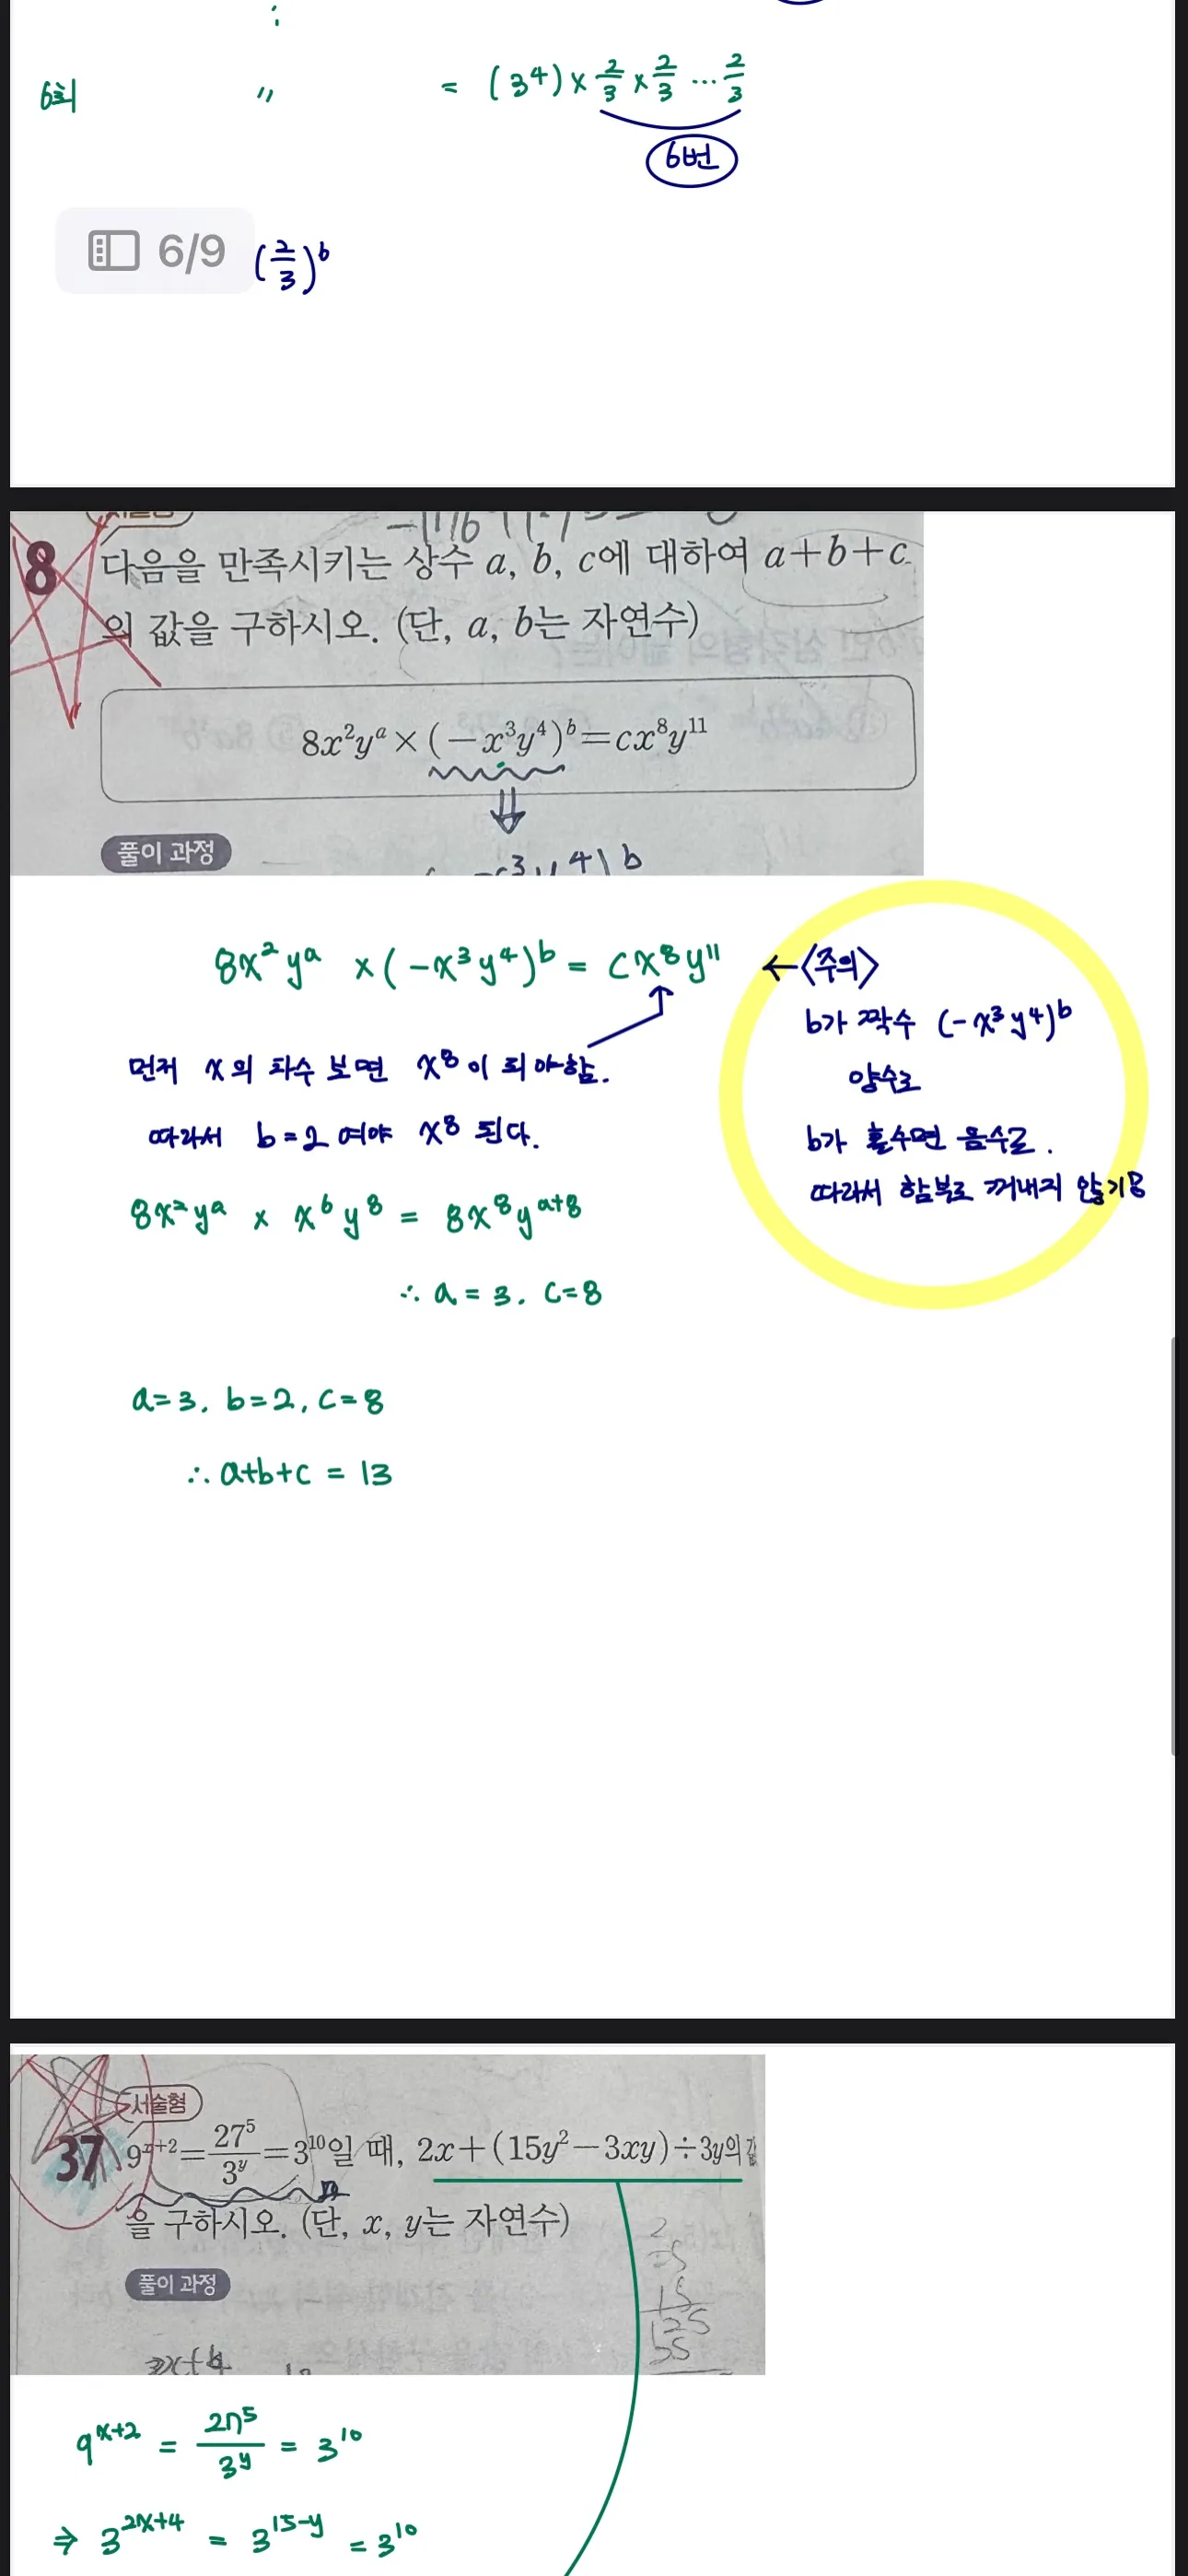 6회 " = (3⁴) × 2/3 × 2/3 ... 2/3
6번
6/9 (2/3)ᵇ
8 다음을 만족시키는 상수 a, b, c에 대하여 a+b+c
의 값을 구하시오. (단, a, b는 자연수)
8x²yᵃ×(−x³y⁴)ᵇ=cx⁸y¹¹
⇓
풀이 과정
8x²yᵃ ×(−x³y⁴)ᵇ = cx⁸y¹¹ ←<주의>
b가 짝수 (−x³y⁴)ᵇ
먼저 x의 차수 보면 x⁸이 되야함.
양수로
따라서 b=2 여야 x⁸ 된다.
b가 홀수면 음수로.
따라서 함부로 꺼내지 않기용
8x²yᵃ × x⁶y⁸ = 8x⁸yᵃ⁺⁸
∴ a=3. c=8
a=3. b=2, c=8
∴ a+b+c = 13
서술형
37 9ˣ⁺²=27⁵/3ʸ=3¹⁰일 때, 2x+(15y²−3xy)÷3y의 값
을 구하시오. (단, x, y는 자연수)
풀이 과정
9ˣ⁺² = 27⁵/3ʸ = 3¹⁰
⇒ 3²ˣ⁺⁴ = 3¹⁵⁻ʸ = 3¹⁰